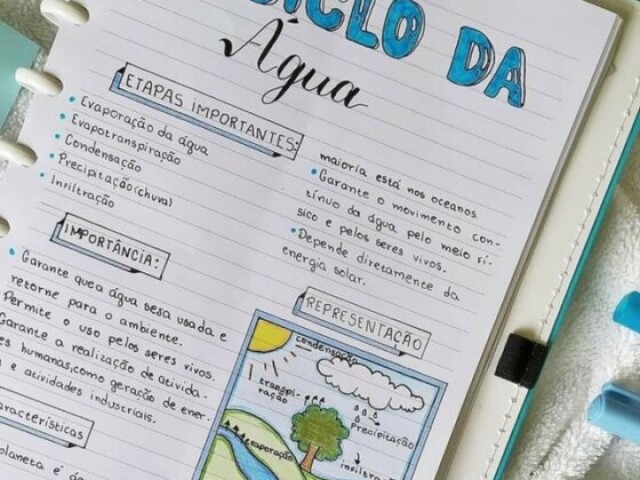 CICLO DA
Água
ETAPAS IMPORTANTES:
Evaporação da água
Evapotranspiração
Condensação
Precipitação (chuva)
Infiltração
IMPORTÂNCIA:
Garante que a água seja usada e
retorne para o ambiente.
Permite o uso pelos seres vivos.
Garante a realização de ativida-
es humanas, como geração de ener-
e atividades industriais.
aracterísticas
planeta é
maioria está nos oceanos.
Garante o movimento con-
tínuo da água pelo meio fí-
sico e pelos seres vivos.
Depende diretamente da
energia solar.
REPRESENTAÇÃO
condensação
transpi-
ração
precipitação
evaporação